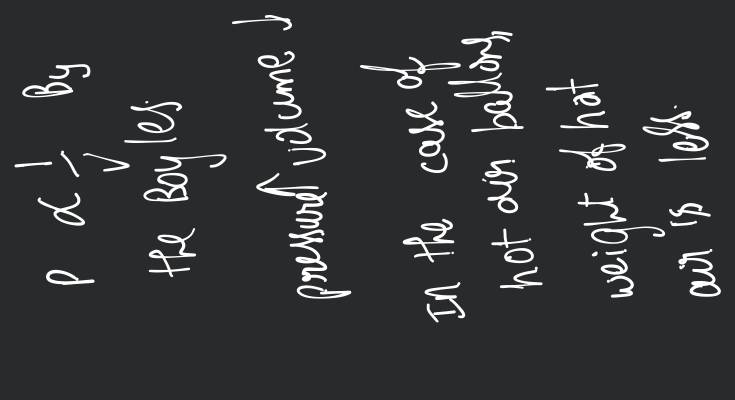 P α 1/V By
the Boyles
pressure↑ volume ↓
In the case of
hot air ballons,
weight of hot
air is less.